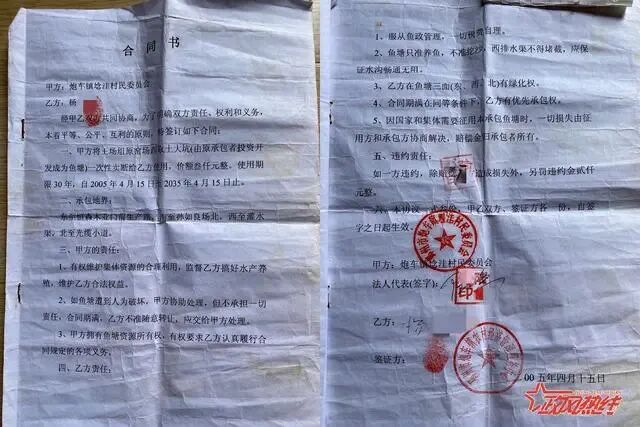 合同书
甲方：炮车镇埝洼村民委员会
乙方：杨
经甲乙双方共同协商，为了明确双方责任、权利和义务，
本着平等、公平、互利的原则，特签订如下合同：
一、甲方将王场组原窑场西双十大坑(由原承包者投资开
发成为鱼塘)一次性卖断给乙方使用，价额叁仟元整。使用期
限30年，自2005年4月15日至2035年4月15日止。
二、承包地界：
北至光缆小道。
三、甲方的责任：
1、有权维护集体资源的合理利用，监督乙方搞好水产养
殖，维护乙方合法权益。
2、如鱼塘遭到人为破坏，甲方协助处理，但不承担一切
责任，合同期满，乙方不准随意转让，应交给甲方处理。
3、甲方拥有鱼塘资源所有权，有权要求乙方认真履行合
同规定的各项义务。
四、乙方责任：
1、服从鱼政管理，一切税费自理。
2、鱼塘只准养鱼，不准挖沙，西排水渠不得堵截，应保
证水沟畅通无阻。
3、乙方在鱼塘三面(东、西、北)有绿化权。
4、合同期满在同等条件下，乙方有优先承包权。
5、因国家和集体需要征用本承包鱼塘时，一切损失由征
用方和承包方协商解决，赔偿金归承包者所有。
五、违约责任：
如一方违约，除赔 造成损失外，另罚违约金贰仟
元整。
六、本协议一式叁份，甲乙双方、鉴证方各一份，自签
字之日起生效。
甲方：炮车镇埝洼村民委员会
法人代表(签字)：
印
乙方：
鉴证方：
00五年四月十五日
政风热线